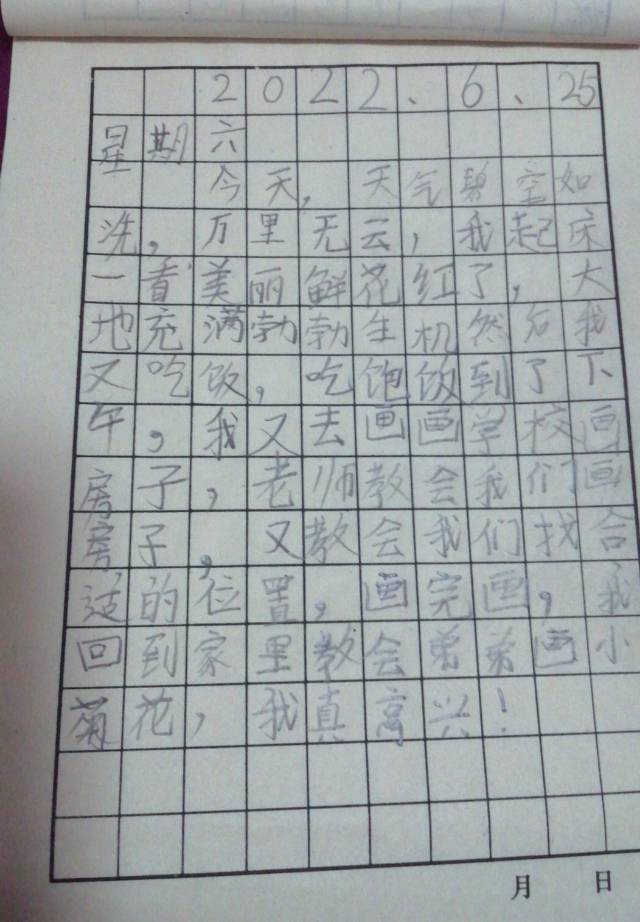 2022、6、25
星期六
今天，天气碧空如
洗，万里无云，我起床
一看美丽鲜花红了，大
地充满勃勃生机然后我
又吃饭，吃饱饭到了下
午，我又去画画学校画
房子，老师教会我们画
房子，又教会我们找合
适的位置，画完画，我
回到家里教会弟弟画小
菊花，我真高兴！
月 日